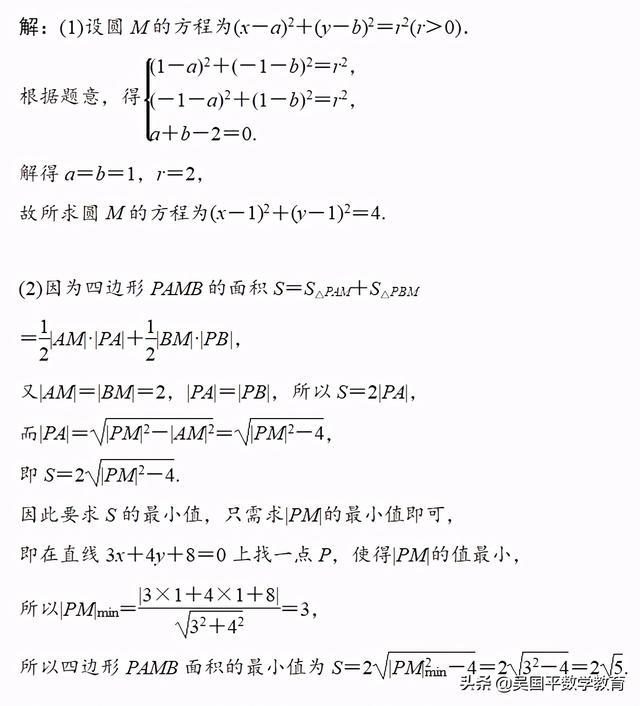 解：(1)设圆 M 的方程为(x－a)²＋(y－b)²＝r²(r＞0)．
(1－a)²＋(－1－b)²＝r²，
根据题意，得 (－1－a)²＋(1－b)²＝r²，
a＋b－2＝0.
解得 a＝b＝1，r＝2，
故所求圆 M 的方程为(x－1)²＋(y－1)²＝4.
(2)因为四边形 PAMB 的面积 S＝S△PAM＋S△PBM
＝1/2|AM|·|PA|＋1/2|BM|·|PB|，
又|AM|＝|BM|＝2，|PA|＝|PB|，所以 S＝2|PA|，
而|PA|＝√(|PM|²－|AM|²)＝√(|PM|²－4)，
即 S＝2√(|PM|²－4).
因此要求 S 的最小值，只需求|PM|的最小值即可，
即在直线 3x＋4y＋8＝0 上找一点 P，使得|PM|的值最小，
所以|PM|min＝|3×1＋4×1＋8|/√(3²＋4²)＝3，
所以四边形 PAMB 面积的最小值为 S＝2√(|PM|²min－4)＝2√(3²－4)＝2√5.
头条 @吴国平数学教育